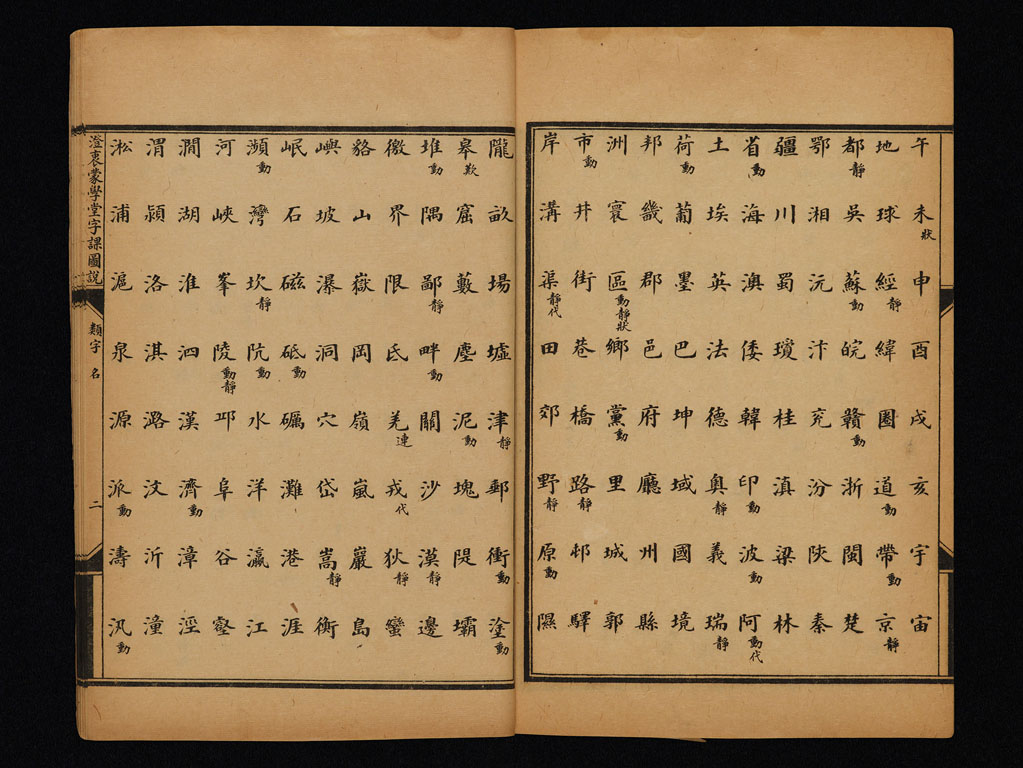 午未狀申酉戌亥宇宙
地球經靜緯圈道動帶動京靜
都靜吳蘇動皖贛動浙閩楚
鄂湘沅汴兖汾陝秦
疆川蜀瓊桂滇梁林
省動海澳倭韓印動波動阿動代
土埃英法德奧靜義瑞靜
荷動葡墨巴坤域國境
邦畿郡邑府廳州縣
洲寰區動靜狀鄉黨動里城郭
市動井街巷橋路靜邨驛
岸溝渠靜代田郊野靜原動隰
隴畝場墟津靜郵衝動塗動
皋歎窟藪塵泥動塊隄壩
堆動隅鄙靜畔動關沙漠靜邊
徼界限氐羌連戎代狄靜蠻
貉山嶽岡嶺嵐巖島
嶼坡瀑洞穴岱嵩靜衡
岷石磁砥動礪灘港涯
瀕動灣坎靜阬動水洋瀛江
河峽峯陵動靜邛阜谷壑
澗湖淮泗漢濟動漳涇
渭潁洛淇潞汶沂潼
淞浦滬泉源派動濤汎動
澄衷蒙學堂字課圖說
類字
名
二